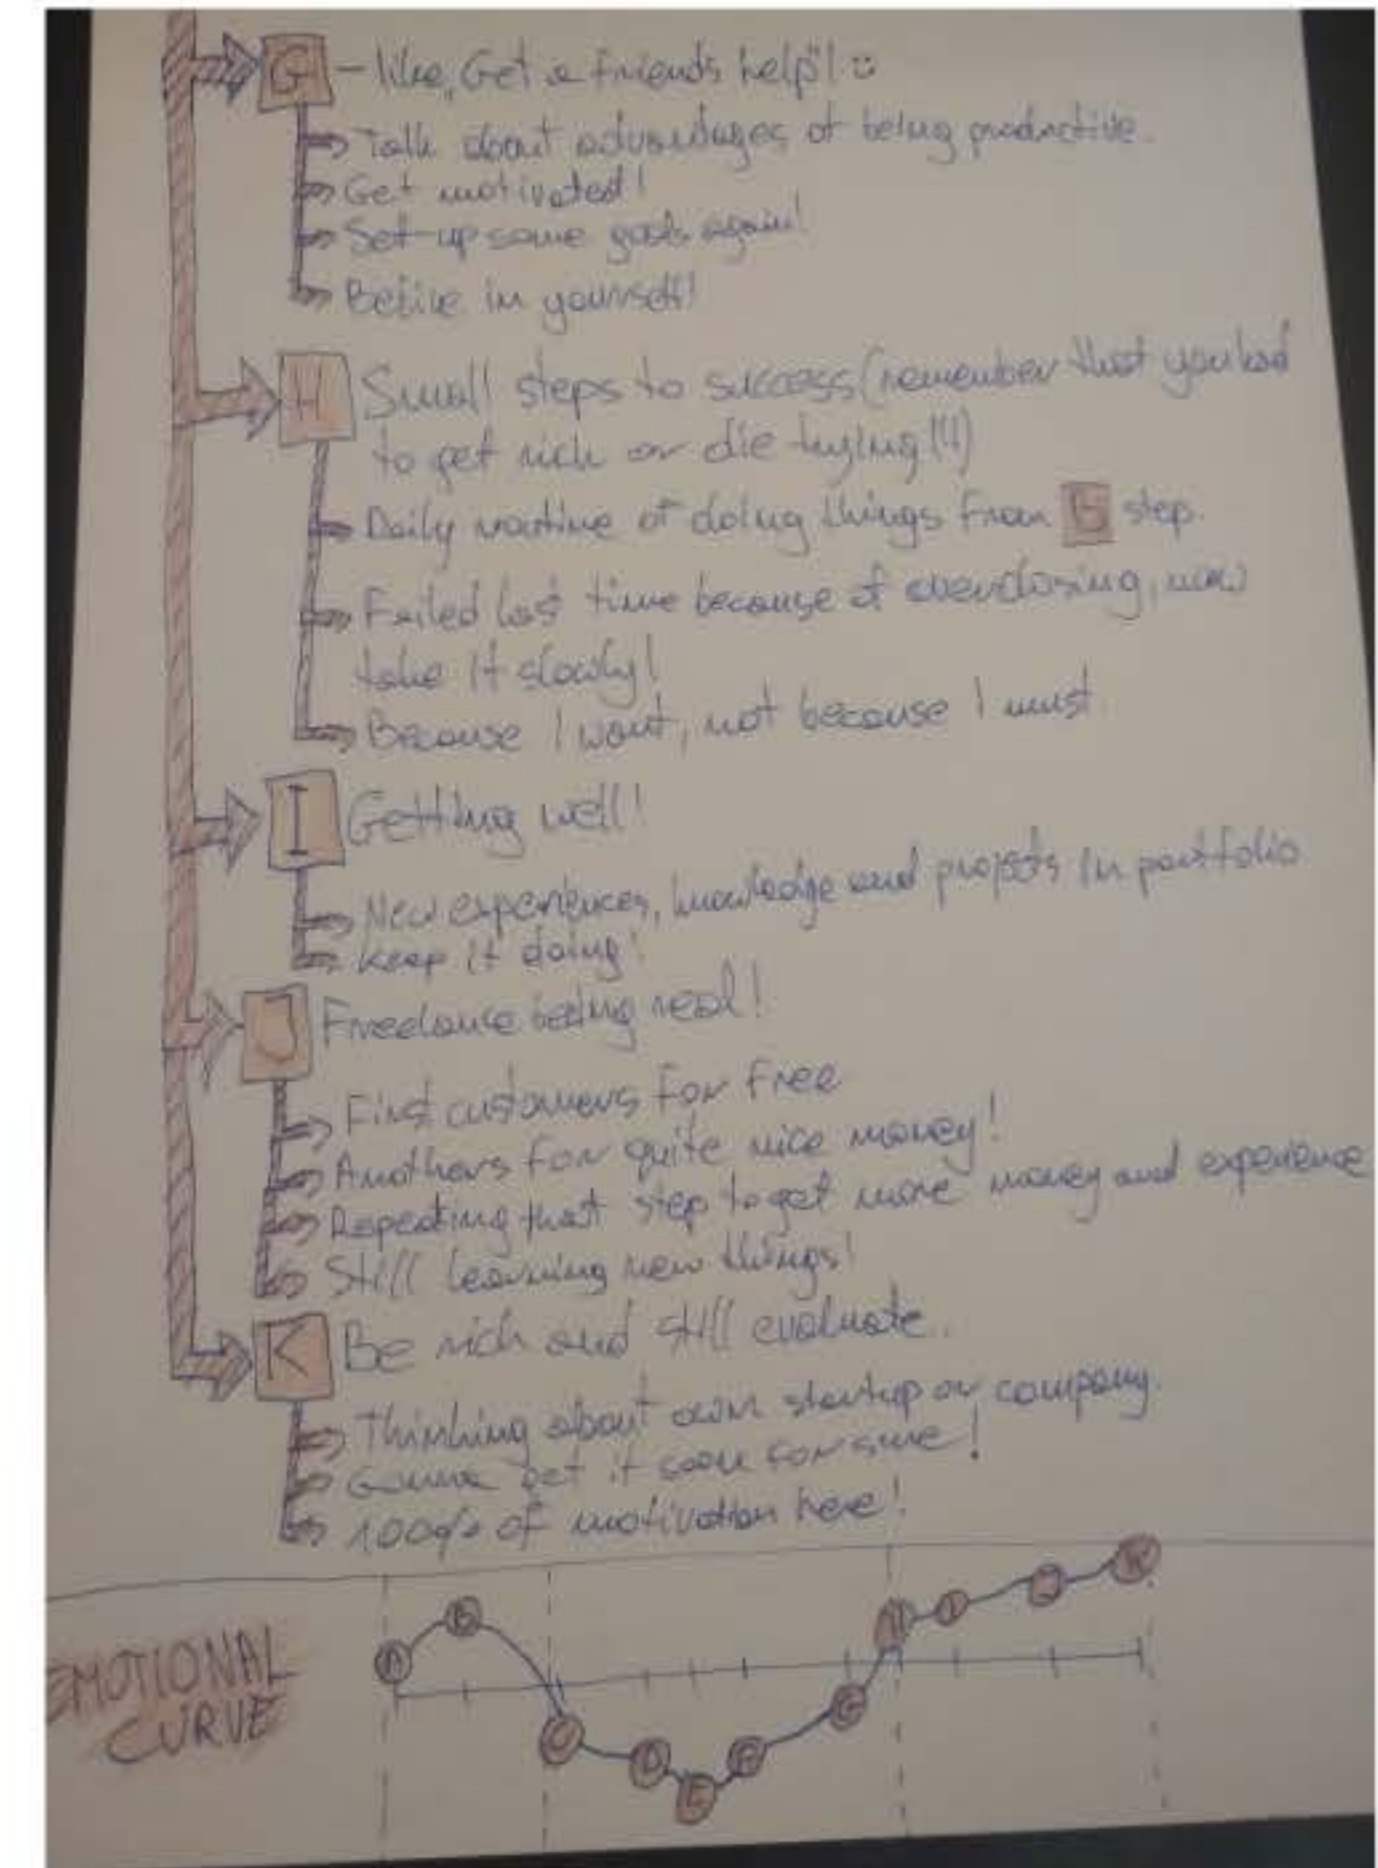 G - like „Get a friends help"! :)
Talk about advantages of being productive.
Get motivated!
Set-up some goals again!
Belive in yourself!
H Small steps to success (remember that you had
to get rich or die trying !!)
Daily routine of doing things from B step.
Failed last time because of overdosing, now
take it slowly!
Because I want, not because I must.
I Getting well!
New experiences, knowledge and projects in portfolio
Keep it doing!
J Freelance being real!
First customers for free
Anothers for quite nice money!
Repeating that step to get more money and experience
Still learning new things!
K Be rich and still evaluate..
Thinking about own startup or company.
Gonna get it soon for sure!
100% of motivation here!
EMOTIONAL
CURVE
A B C D E F G H I J K